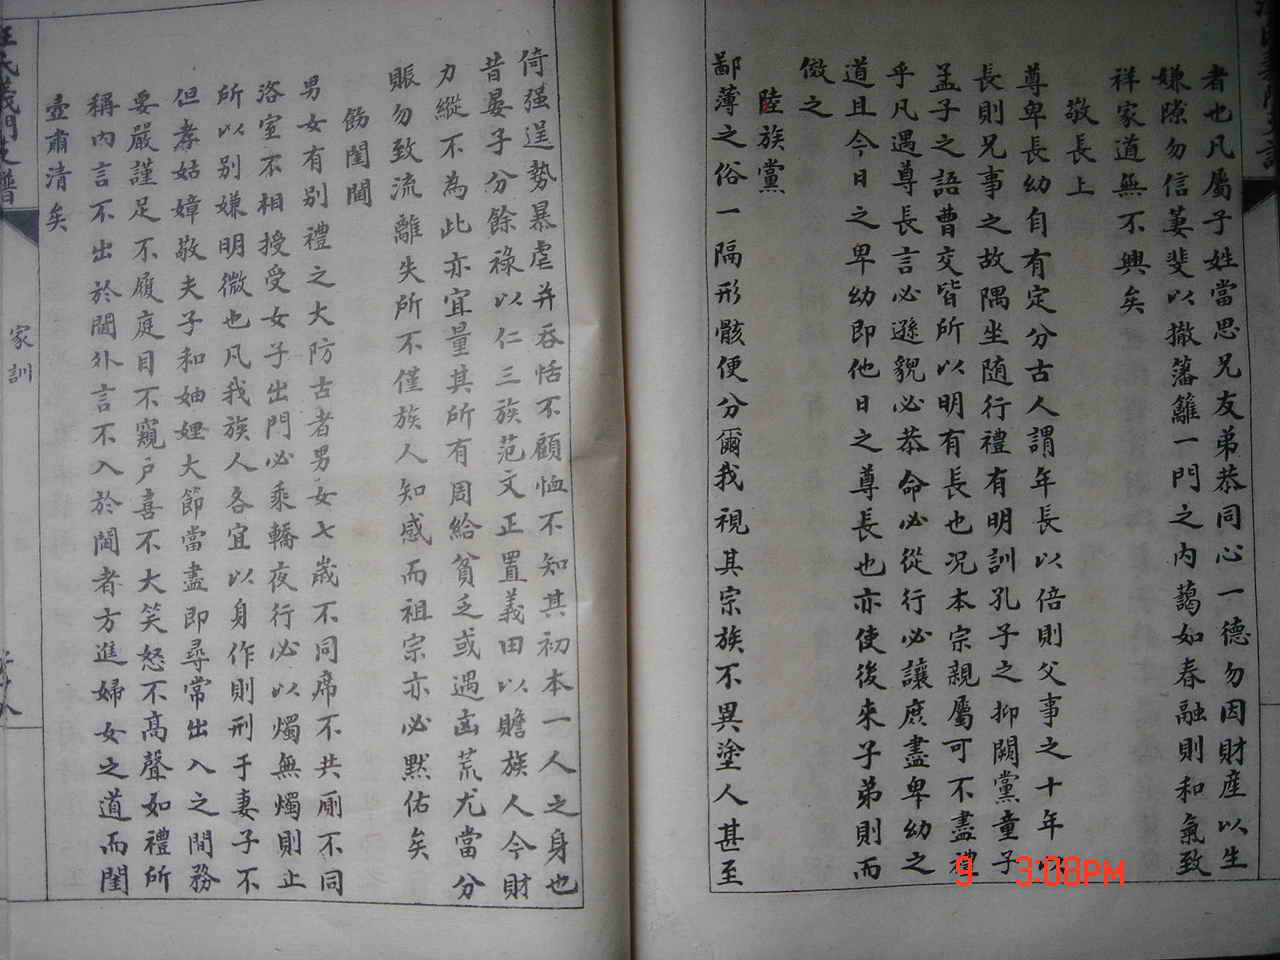 者也凡屬子姓當思兄友弟恭同心一德勿因財產以生
嫌隙勿信萋斐以撤藩籬一門之內藹如春融則和氣致
祥家道無不興矣
敬長上
尊卑長幼自有定分古人謂年長以倍則父事之十年以
長則兄事之故隅坐隨行禮有明訓孔子之抑闕黨童子
孟子之語曹交皆所以明有長也况本宗親屬可不盡禮
乎凡遇尊長言必遜貌必恭命必從行必讓庶盡卑幼之
道且今日之卑幼即他日之尊長也亦使後來子弟則而
倣之
陸族黨
鄙薄之俗一隔形骸便分爾我視其宗族不異塗人甚至
倚强逞勢暴虐并吞恬不顧恤不知其初本一人之身也
昔晏子分餘祿以仁三族范文正置義田以贍族人今財
力縱不為此亦宜量其所有周給貧乏或遇凶荒尤當分
賬勿致流離失所不僅族人知感而祖宗亦必默佑矣
飭閨閫
男女有別禮之大防古者男女七歲不同席不共厠不同
洛室不相授受女子出門必乘轎夜行必以燭無燭則止
所以别嫌明微也凡我族人各宜以身作則刑于妻子不
但孝姑嫜敬夫子和妯娌大節當盡即尋常出入之間務
要嚴謹足不履庭目不窺戶喜不大笑怒不高聲如禮所
稱內言不出於閫外言不入於閫者方進婦女之道而閨
壼肅清矣
汪氏義門支譜
家訓
9 3:08PM